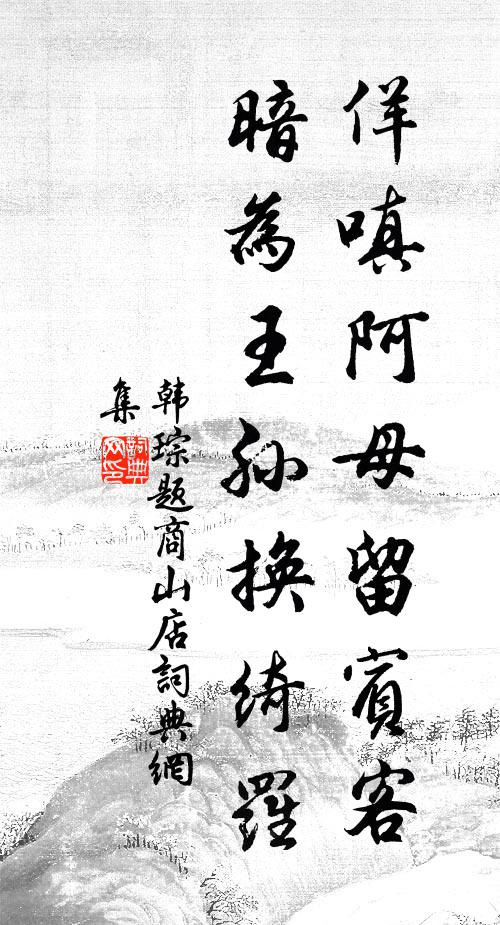 佯嗔阿母留賓客
暗為王孫換綺羅
韩琮题商山店詞典網
集
詞典网印